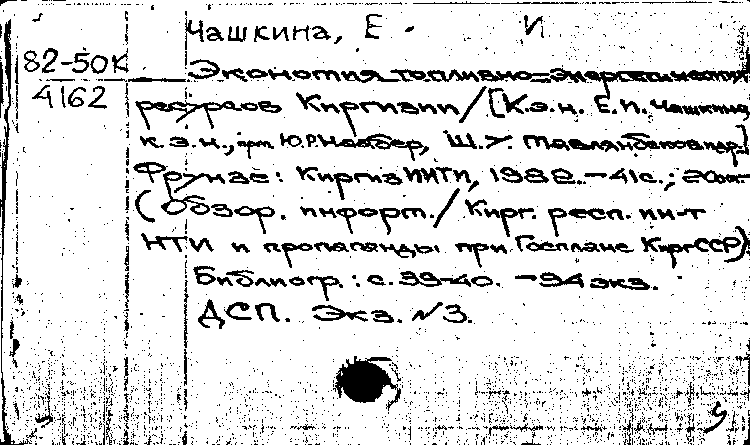 Чашкина, Е. И
82-50К
4162
Экономия топливно-энергетических
ресурсов Киргизии / [К.э.н. Е.И. Чашкина,
к.э.н., Ю.Р. Ш.У. Мавлянбекова и др.]
Фрунзе: КиргизНИИНТИ, 1982. – 41с.; 20см –
(Обзор. информ. / Кирг. респ. ин-т
НТИ и пропаганды при Госплане КиргССР)
Библиогр.: с. 39-40. – 94 экз.
ДСП. Экз. №3.